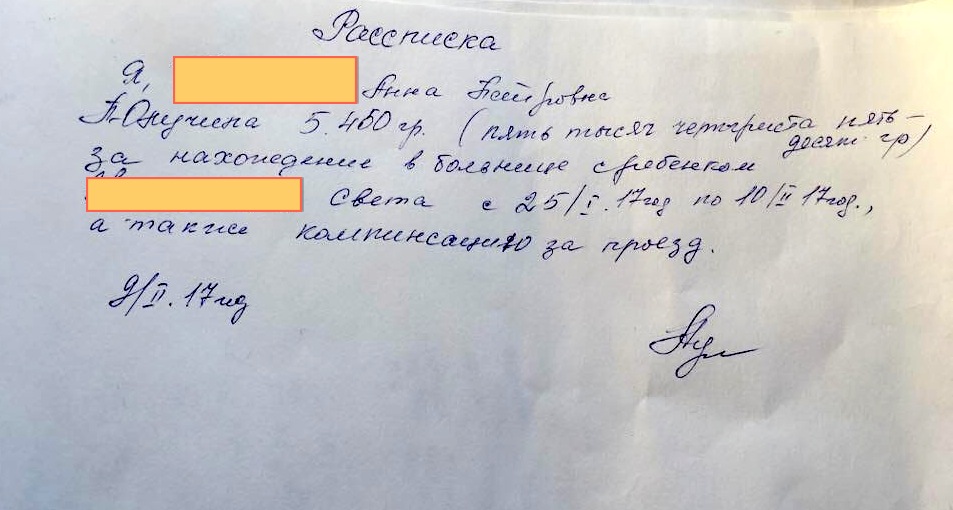 Рассписка
Я, Анна Петровна
5.450 гр. (пять тысяч четыриста пять-
десят гр)
за нахождение в больнице с ребенком
Света с 25/I.17год по 10/II 17год.,
а также компинсацию за проезд.
9/II.17год